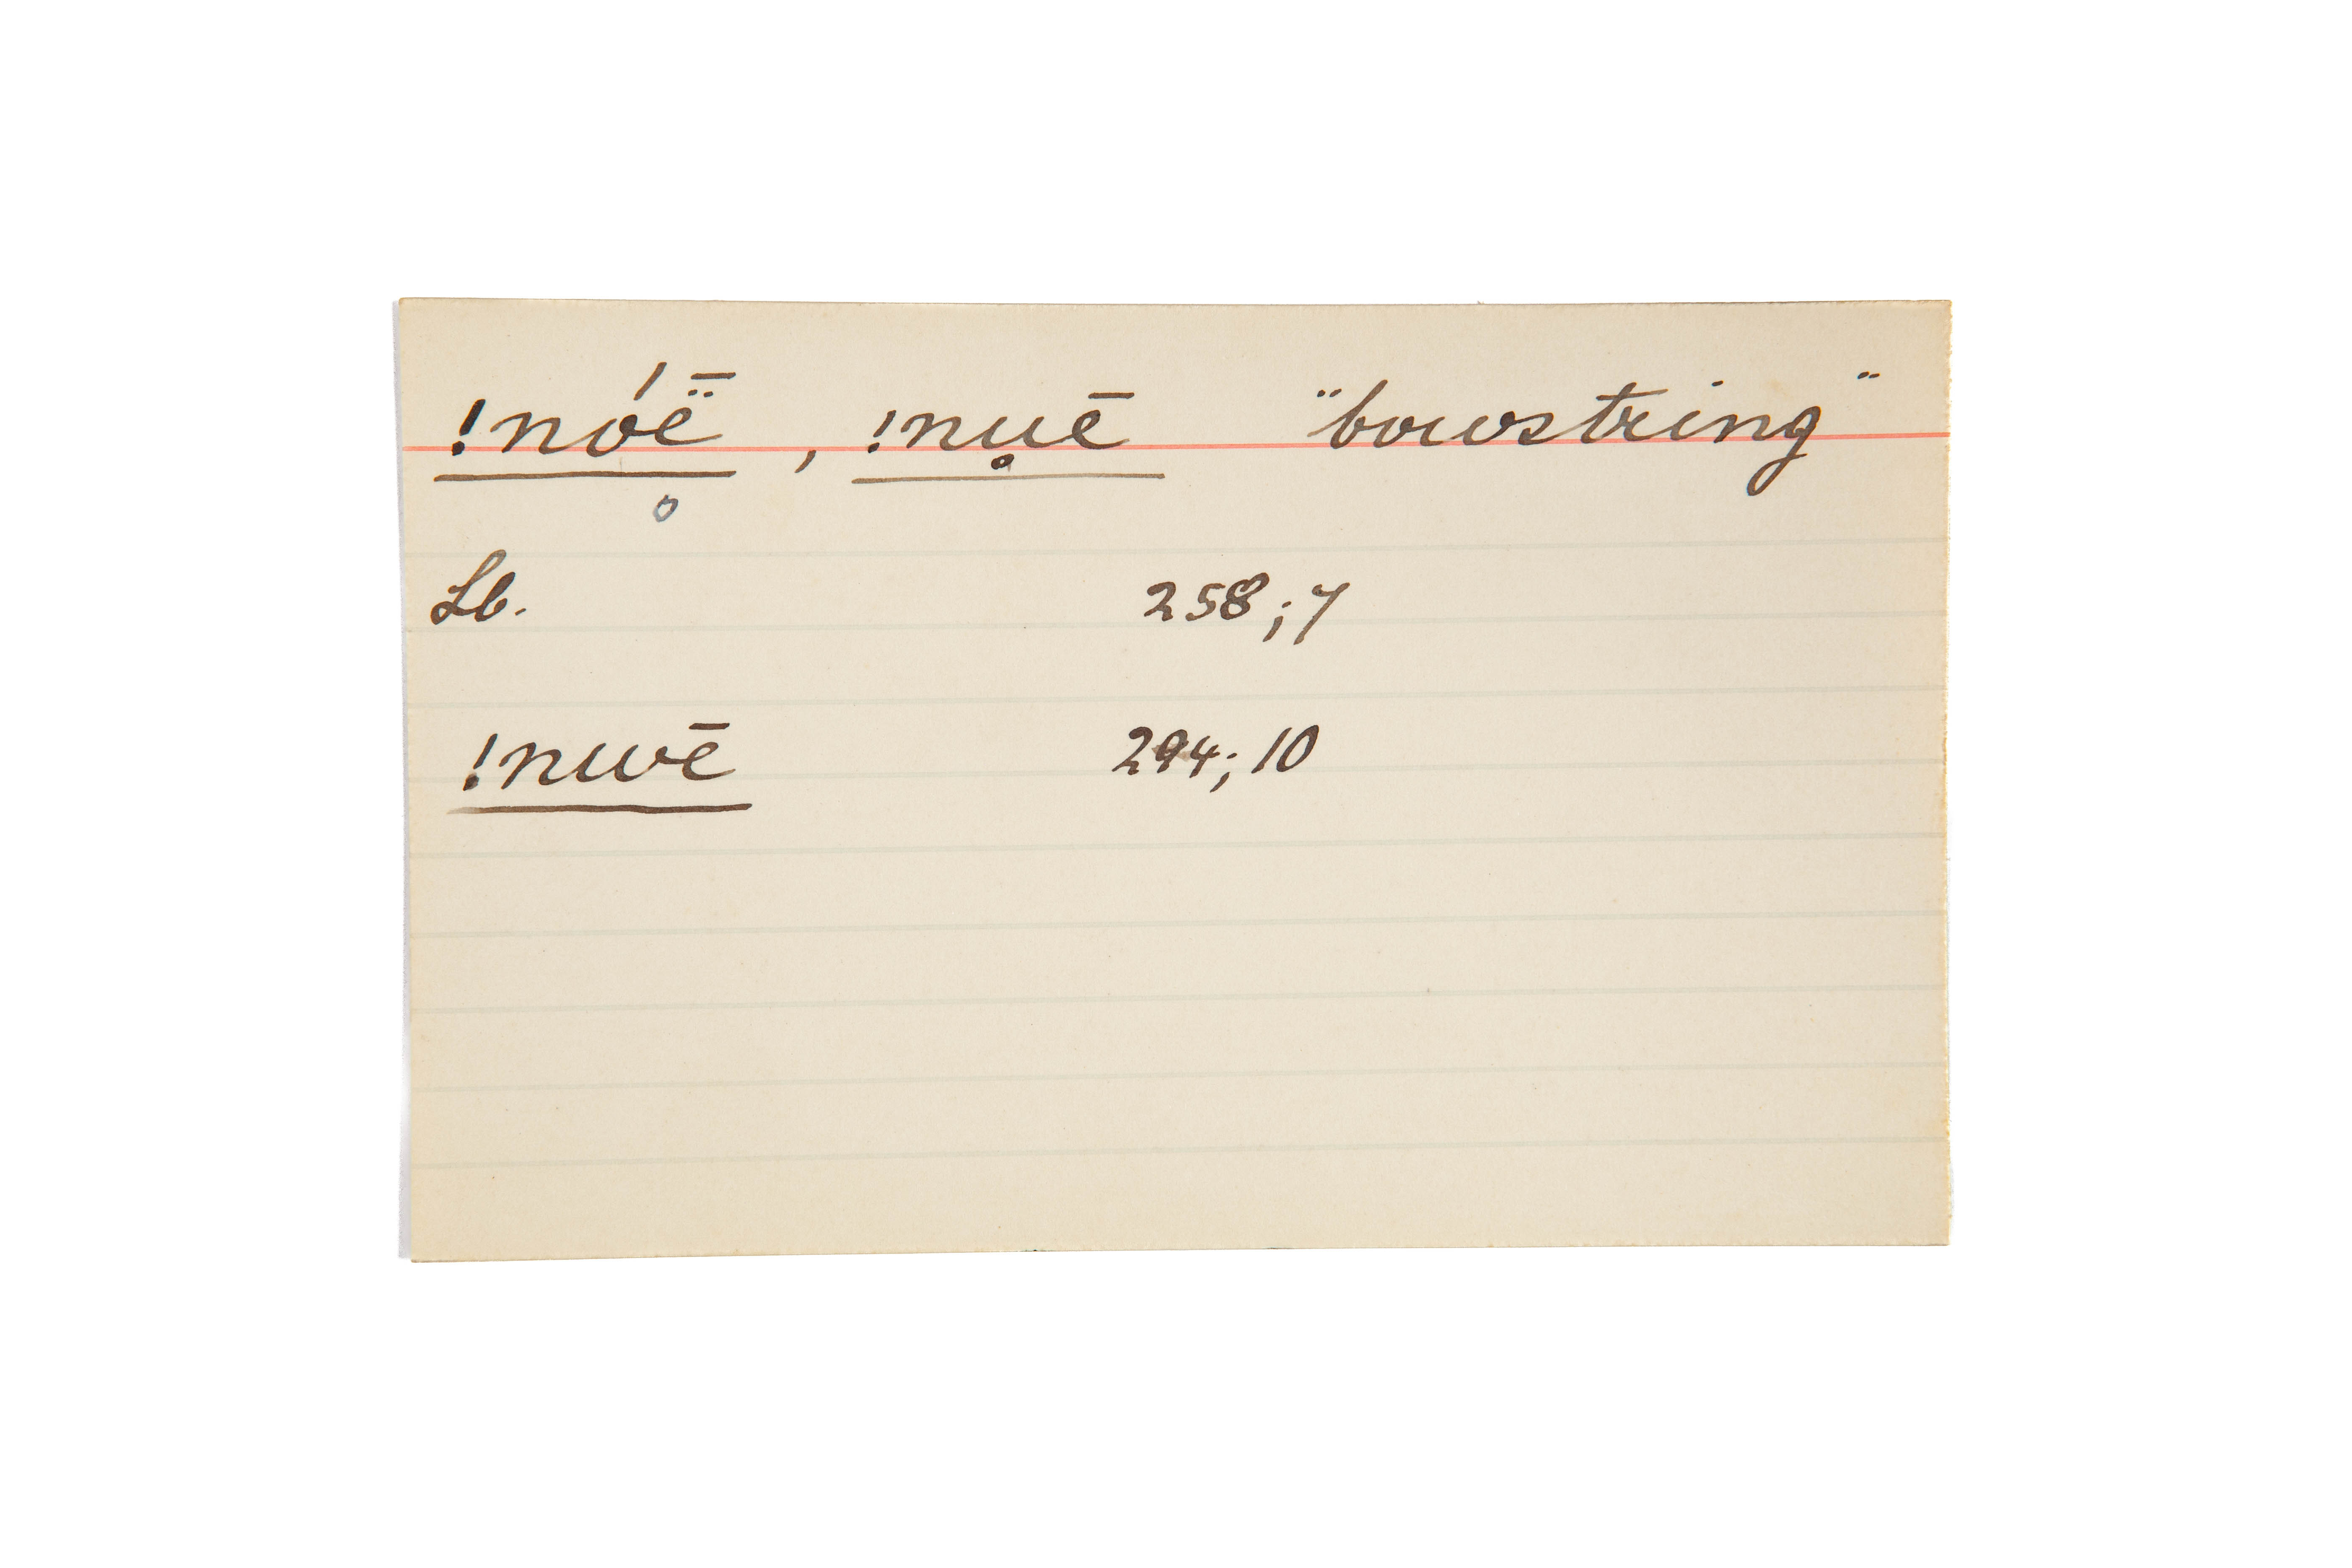 !nóë̄, !nu̥ē "bowstring"
o
Lb. 258;7
!nwē 294;10